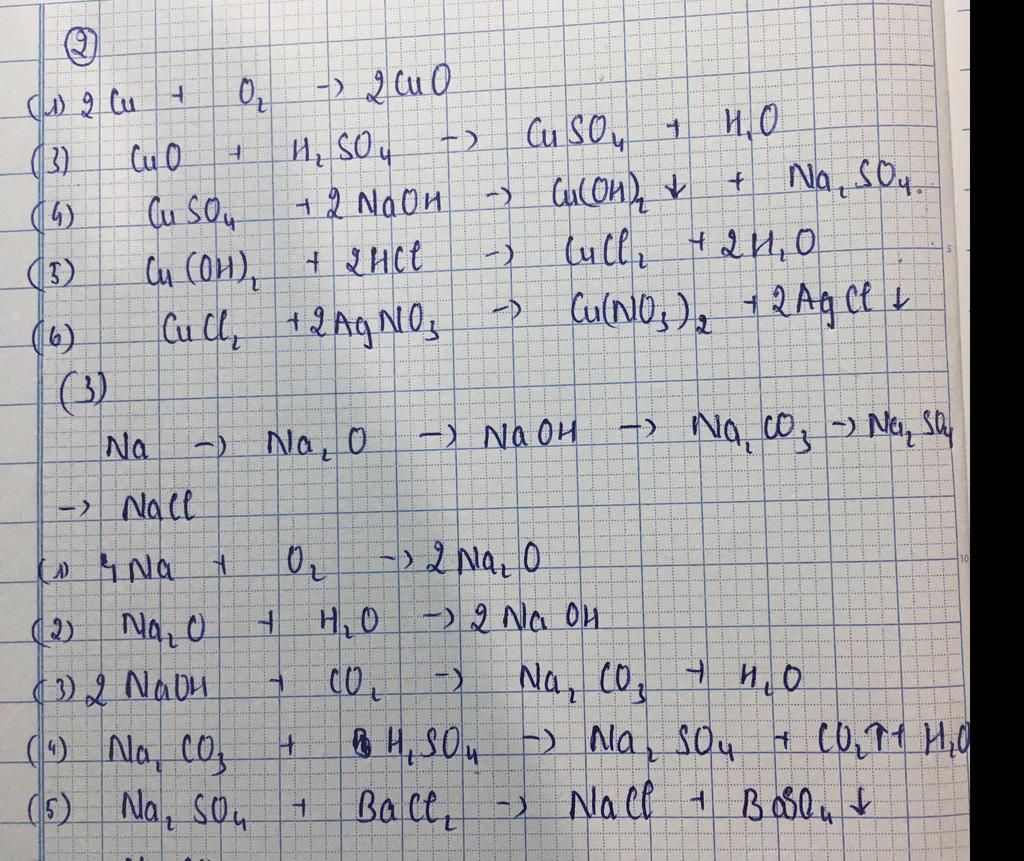 ②
(1) 2Cu + O₂ → 2CuO
(3) CuO + H₂SO₄ → CuSO₄ + H₂O
(4) CuSO₄ + 2NaOH → Cu(OH)₂ ↓ + Na₂SO₄.
(5) Cu(OH)₂ + 2HCl → CuCl₂ + 2H₂O
(6) CuCl₂ + 2AgNO₃ → Cu(NO₃)₂ + 2AgCl ↓
(3)
Na → Na₂O → NaOH → Na₂CO₃ → Na₂SO₄
→ NaCl
(1) 4Na + O₂ → 2Na₂O
(2) Na₂O + H₂O → 2NaOH
(3) 2NaOH + CO₂ → Na₂CO₃ + H₂O
(4) Na₂CO₃ + H₂SO₄ → Na₂SO₄ + CO₂↑ + H₂O
(5) Na₂SO₄ + BaCl₂ → NaCl + BaSO₄ ↓